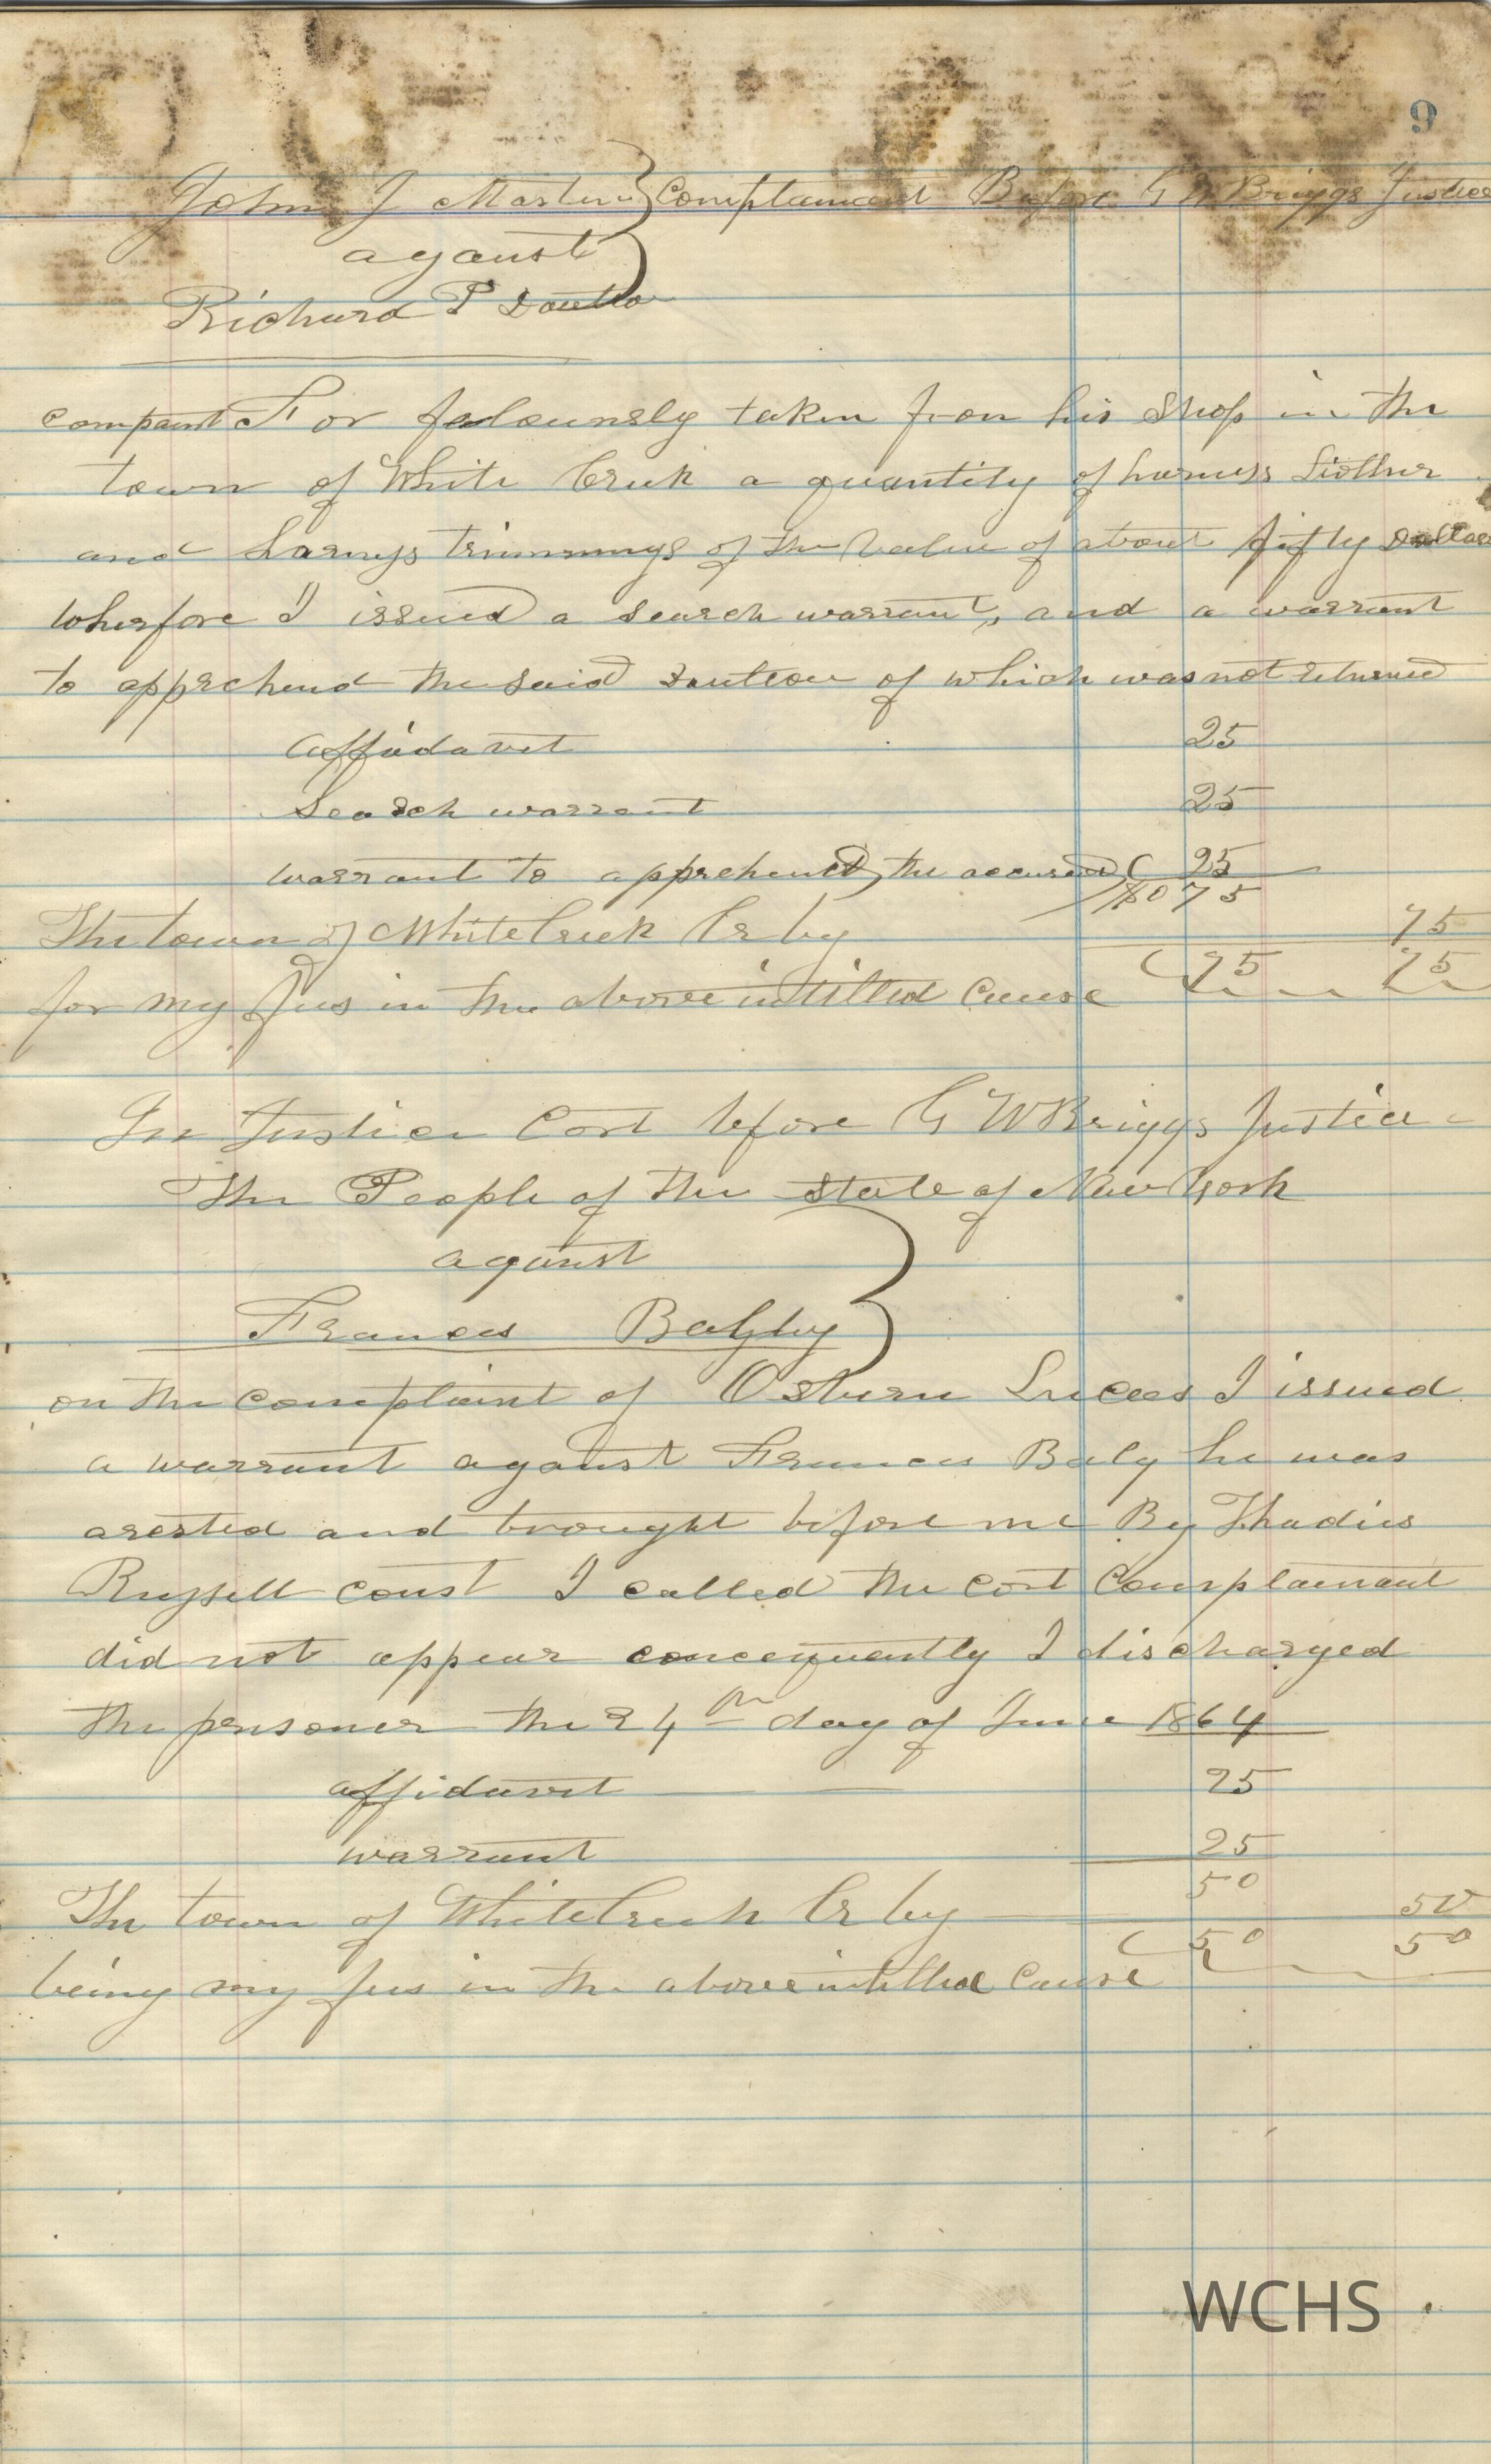 9
John J Martin Complainant Before G W Briggs Justice
aganst
Richard P
compant For felounsly taken from his Shop in the
town of White Creek a quantity of harness Liether
and harnys trimmings of the value of about fifty Dollars
wherfore I issued a search warrant, and a warrant
to apprehend the said of which was not returned
affidavit 25
Search warrant 25
warrant to apprehend the accused 25
$0 75
The town of White Creek Cr by 75
for my fees in the above intitled Cause 75 75
In Justice Cort before G W Briggs Justice
The People of the State of New York
aganst
Frances
on the complaint of Osburn Lucas I issued
a warrant aganst Frances Baly he was
arested and brought before me By Thadies
Russell const I called the cort Complainant
did not appear concequently I discharged
the prisoner the 24th day of June 1864
affidavit 25
warrant 25
50
The town of White Creek Cr by 50
being my fees in the above intitled Cause 50 50
WCHS